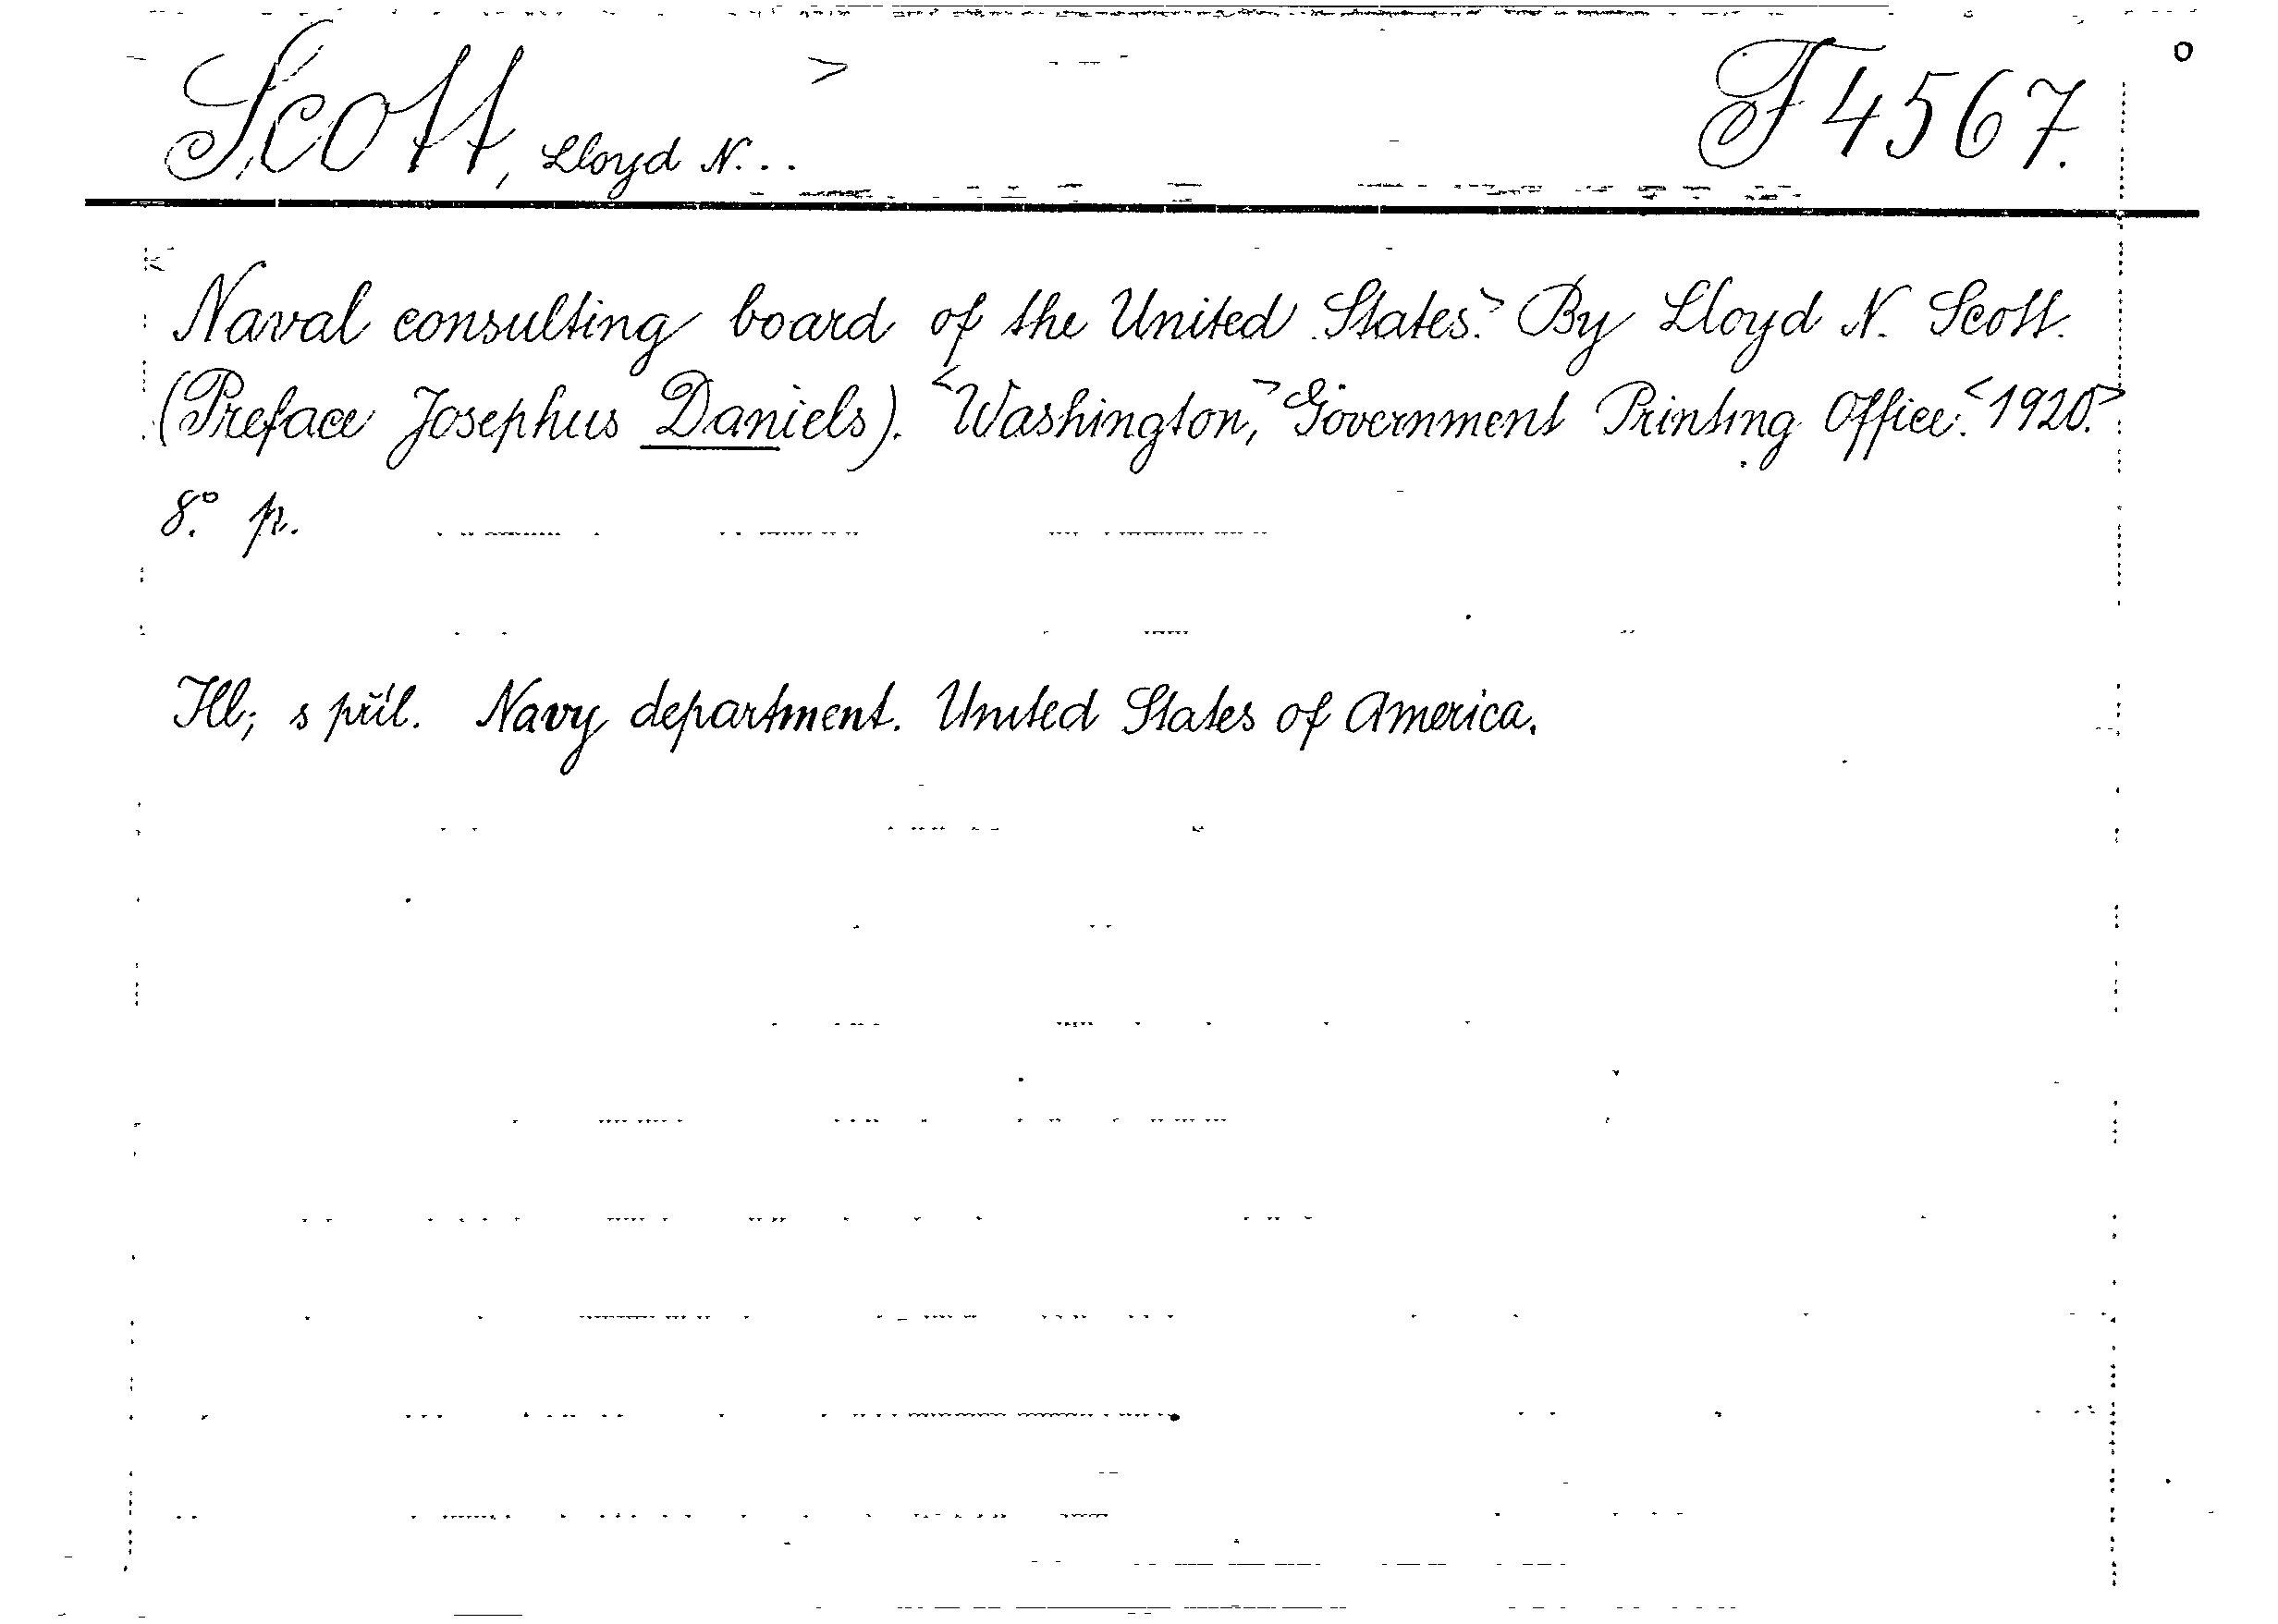 Scott, Lloyd N... > F 4567.
Naval consulting board of the United States.> By Lloyd N. Scott.
(Preface Josephus Daniels). <Washington,> Government Printing Office.<1920.>
8.° p.
Ill; s příl. Navy department. United States of America.